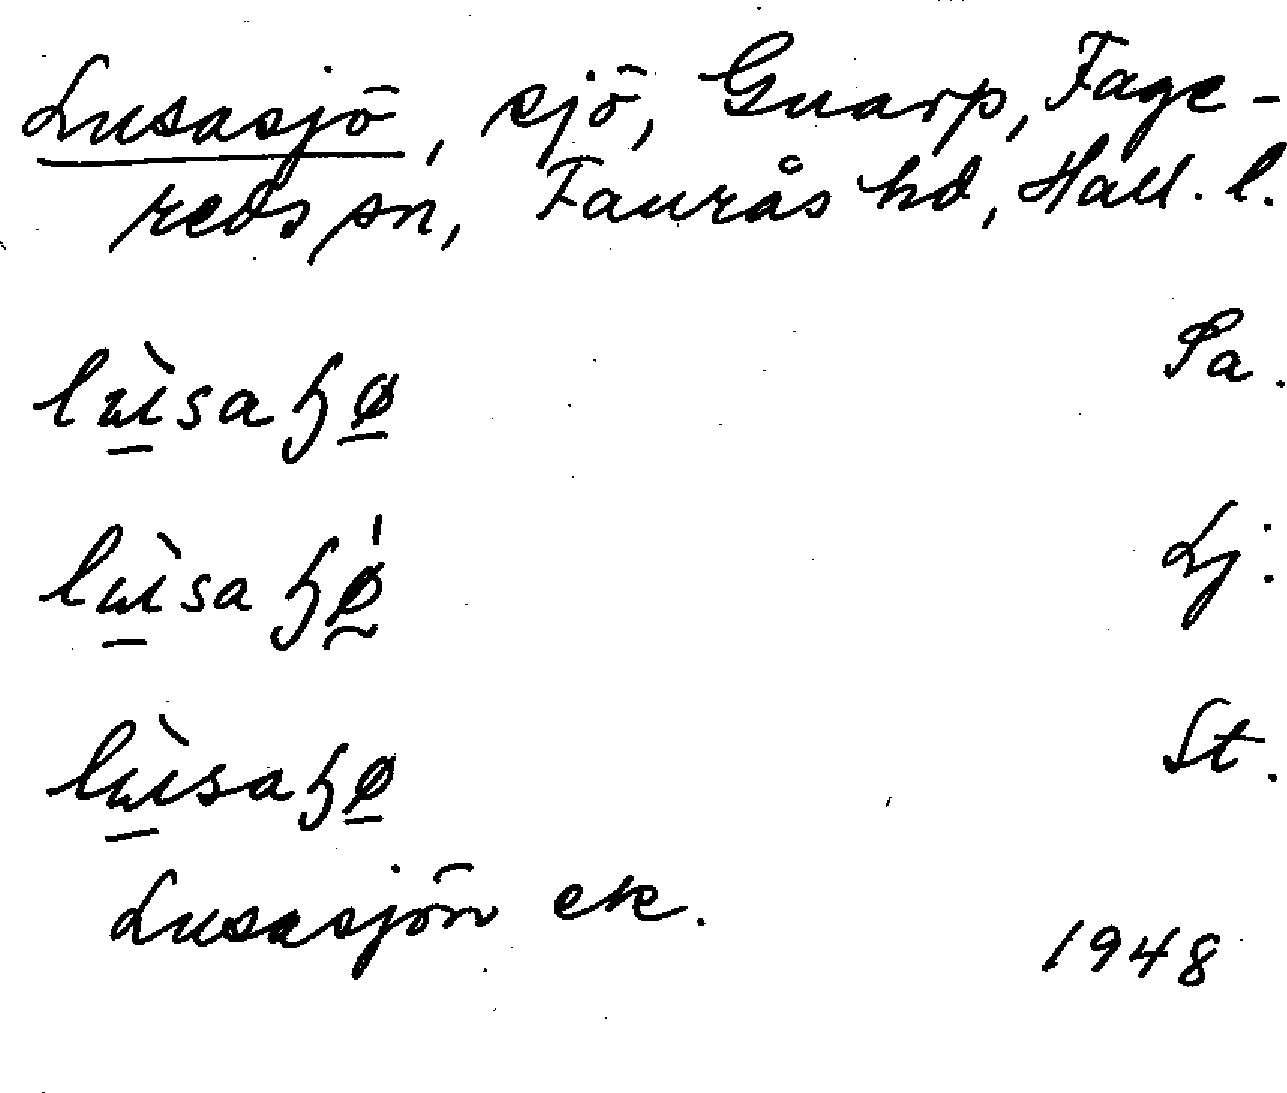 Lusasjö, sjö, Gnarp, Fage-
reds sn, Faurås hd, Hall. l.
lùsaɧø Pa.
lùsaɧǿ Lj.
lùsaɧø St.
Lusasjön ek.
1948